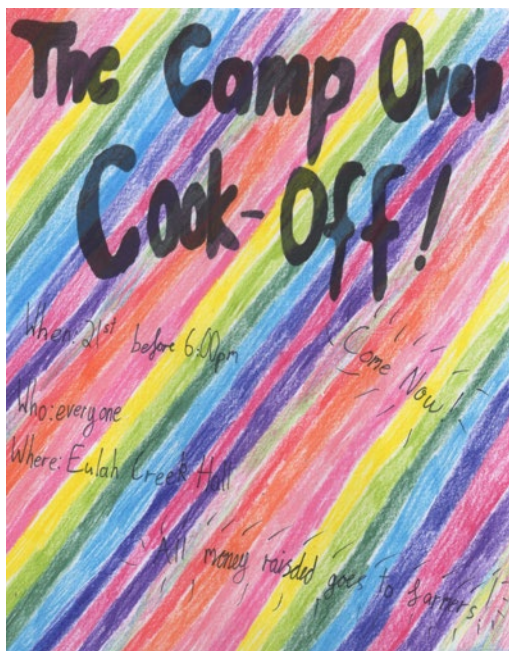 The Camp Oven
Cook-Off!
When: 21st before 6:00pm
Come Now!
Who: everyone
Where: Eulah Creek Hall
All money raisded goes to farmers!